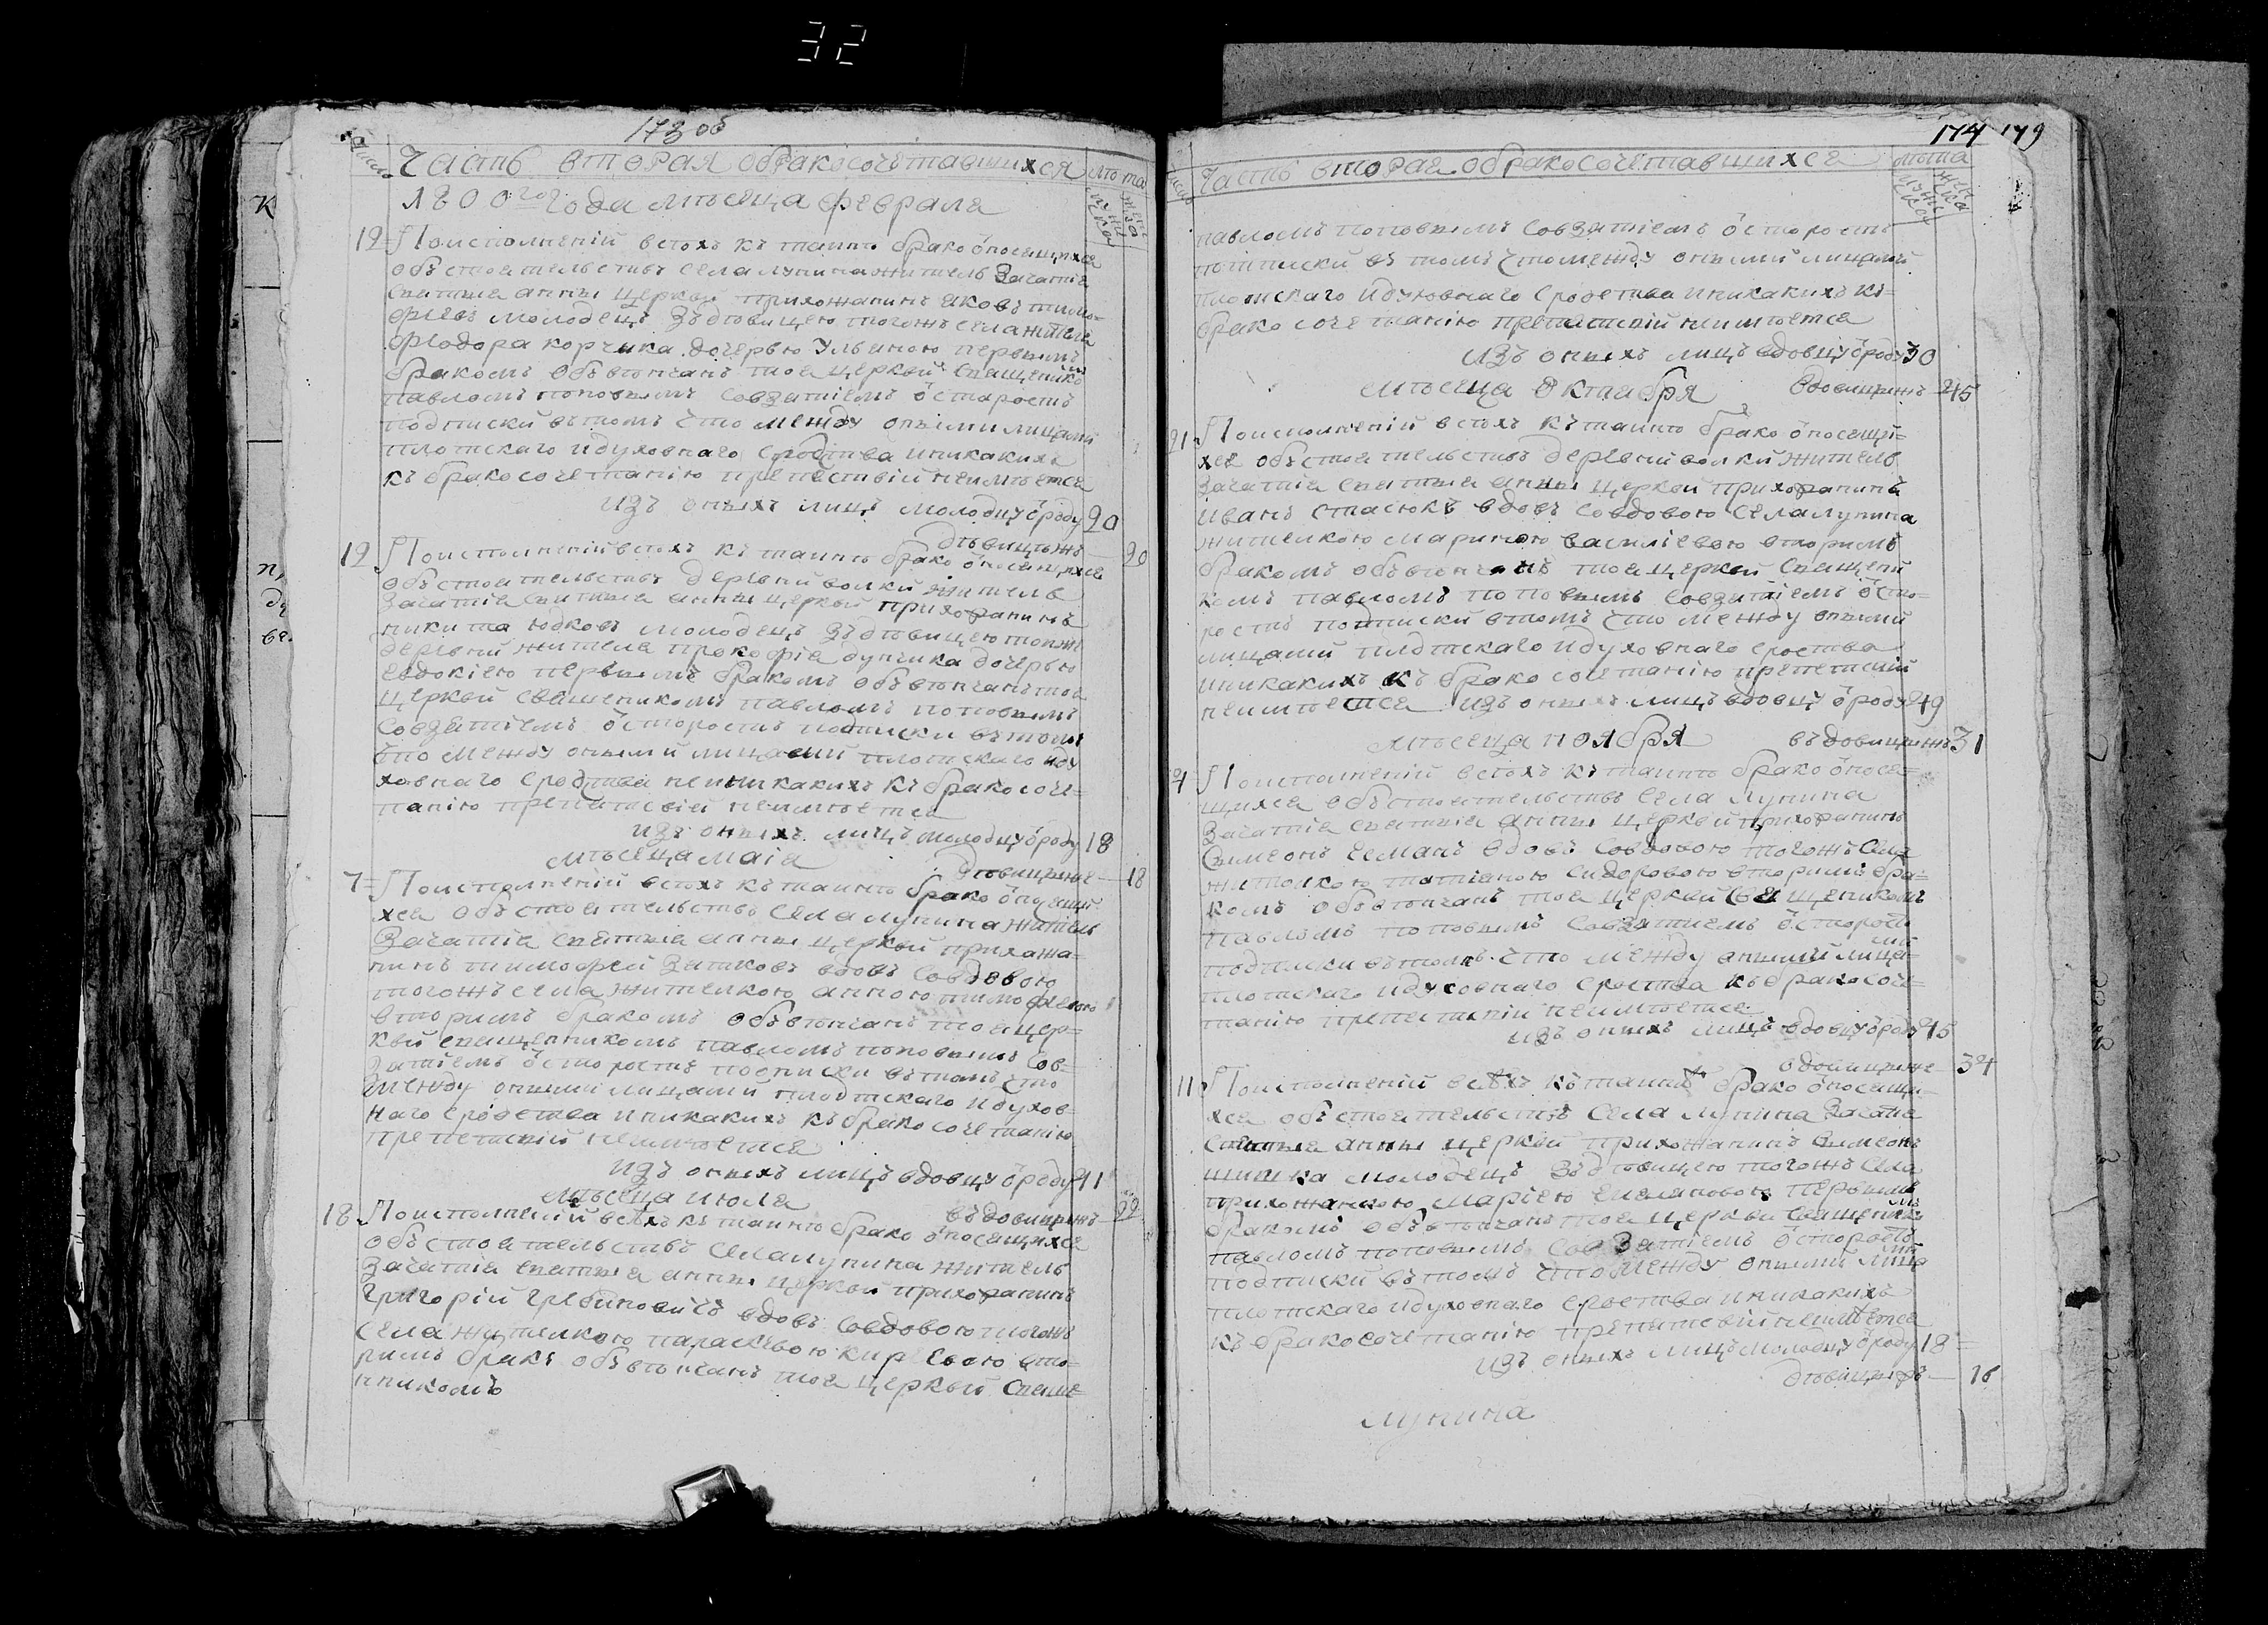 32
173 об
Часть вторая обракосочетавшихся
лѣта
1800го года мѣсеца февраля
12 По исполненій всѣхъ къ таинтѣ брако ѡносещихся
обстоятельствъ села лунина житель Зачатіе
светыя анны церкви прихожанинъ яковъ тимо-
феевъ молодецъ Зъ дѣвицею тогожъ села жителя
феодора корчика дочерью Ульяною первымъ
бракомъ объвѣнчанъ тоя церкви свещенико
павломъ поповымъ Совзятіемъ ѿ старостъ
подписки вътомъ что между оными лицами
плотскаго идуховнаго сродства иникакихъ
къ бракосочетанію препетствій неимѣется
изъ оныхъ лицъ молодцу ѿроду 20
дѣвицѣжъ 20
12 По исполненій всѣхъ къ таинтѣ брако ѡносещихся
обстоятельствъ деревни волки житель
Зачатіа светыя анны церкви прихожанинъ
никита юдковъ молодецъ Зъ дѣвицею тояжъ
деревни жителя прокофіа дунчика дочерью
евдокіею первымъ бракомъ объвѣнчанъ тоя
церкви свещеникомъ павломъ поповымъ
Совзятіемъ ѿ старостъ подписки вътомъ
что между оными лицами плотскаго иду
ховнаго сродства неиникакихъ къ бракосоче-
танію препятсвій неимѣетса
изъ оныхъ лицъ молодцу ѿроду 18
мѣсеца маіа
дѣвицыже 18
7 По исполненій всѣхъ къ таинтѣ брако ѡносещи
хся обстоятельствъ села лунина житель
Зачатіа светыя анны церкви прихожа-
нинъ тимофей Затковъ вдовъ Совдовою
тогожъ села жителкою анною тимофеевою
вторимъ бракомъ объвѣнчанъ тоя цер-
кви свещенникомъ павломъ поповымъ Сов-
зятіемъ ѿ старостъ подписки вътомъ что
между оными лицами плодтскаго идухов-
наго сродства иникакихъ къ бракосочетанію
препетсвій неимѣетса
изъ оныхъ лицъ вдовцу ѿроду 41
мѣсеца июля
въдовицыжъ 22
18 По исполненій всѣхъ къ таинтѣ брако ѡносещихся
обстоятельствъ села лунина житель
Зачатіа светыя анны церкви прихожанинъ
григорій гребиновичъ вдовъ Совдовою тогожъ
села жителкою параскевою киреевою вто-
римъ бракъ объвѣнчанъ тоя церкви свеще-
нникомъ
174 179
Часть вторая обракосочетавшихся
лѣта
павломъ поповымъ Совзятіемъ ѿ старостъ
подписки въ томъ что между оными лицами
плотскаго идуховнаго сродства иникакихъ къ-
бракосочетанію препятствій неимѣется
изъ оныхъ лицъ вдовцу ѿроду 30
мѣсеца Октября
вдовицыжъ 45
21 По исполненій всѣхъ къ таинтѣ брако ѡносещи-
хся обстоятельствъ деревни волки житель
Зачатіа светыя анны церкви прихожанинъ
иванъ стасюкъ вдовъ Совдовою села лунина
жителкою мариною василіевою вторимъ
бракомъ объвѣнчанъ тоя церкви свещени
комъ павломъ поповымъ Совзятіемъ ѿ ста-
ростъ подписки втомъ что между оными
лицами плотскаго идуховнаго сроства
иникакихъ къ бракосочетанію препетсвій
неимѣется изъ оныхъ лицъ вдовцу ѿроду 49
мѣсеца ноября
въдовицыжъ 31
4 По исполненій всѣхъ къ таинтѣ брако ѡносе-
щихся обстоятельствъ села Лунина
Зачатіа светыя анны церкви прихожанинъ
Симеонъ селманъ вдовъ Совдовою тогожъ села
жителкою татіаною Сидоровою вторимъ бра-
комъ объвѣнчанъ тоя церкви Свещеникомъ
павломъ поповымъ Совзятіемъ ѿ старостъ
подписки вътомъ что между оными лица
ми
плотскаго идуховнаго сроства къ бракосоче-
танію препетсвій неимѣетса
изъ оныхъ лицъ вдовцу ѿроду 45
вдовицыже 34
11 По исполненій всѣхъ къ таинтѣ брако ѡносещи-
хся обстоятельствъ Села лунина Зачатіе
светыя анны церкви прихожанинъ Симеонъ
шишка молодецъ Зъ дѣвицею тогожъ села
прихожанкою маріею емеляновою первымъ
бракомъ объвѣнчанъ тоя церкви свещенико
мъ
павломъ поповымъ Совзятіемъ ѿ старостъ
подписки вътомъ что между оными лица
ми
плотскаго идуховнаго сроства иникакихъ
къ бракосочетанію препятсвій неимѣетса
изъ оныхъ лицъ молодцу ѿроду 18
дѣвицыжъ 16
лунина